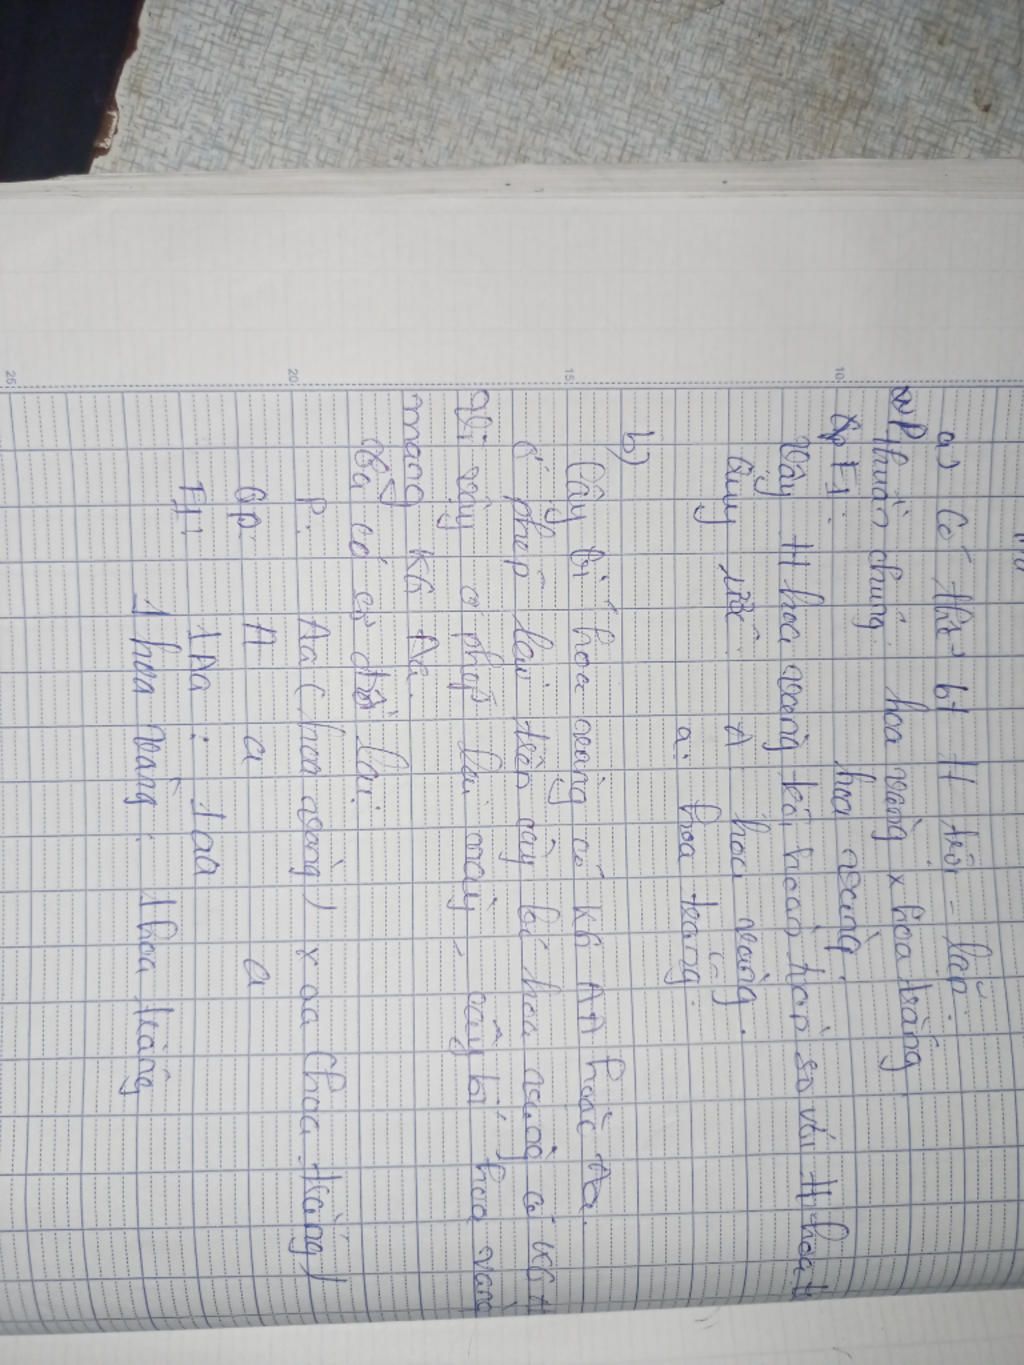 a) Có thể bt tt trội - lặn.
P thuần chủng: hoa vàng x hoa trắng
F1: hoa vàng.
Vậy tt hoa vàng trội hoàn toàn so với tt hoa t
Quy ước: A hoa vàng.
a: hoa trắng.
b)
Cây bí hoa vàng có KG AA hoặc Aa.
ở phép lai trên cây bí hoa vàng có KG A
Vì vậy ở phép lai này, cây bí hoa vàng
mang KG Aa.
Ta có sơ đồ lai:
P: Aa (hoa vàng) x aa (hoa trắng)
Gp: A a a
F1: 1Aa : 1aa
1 hoa vàng : 1 hoa trắng
10
15
20
25